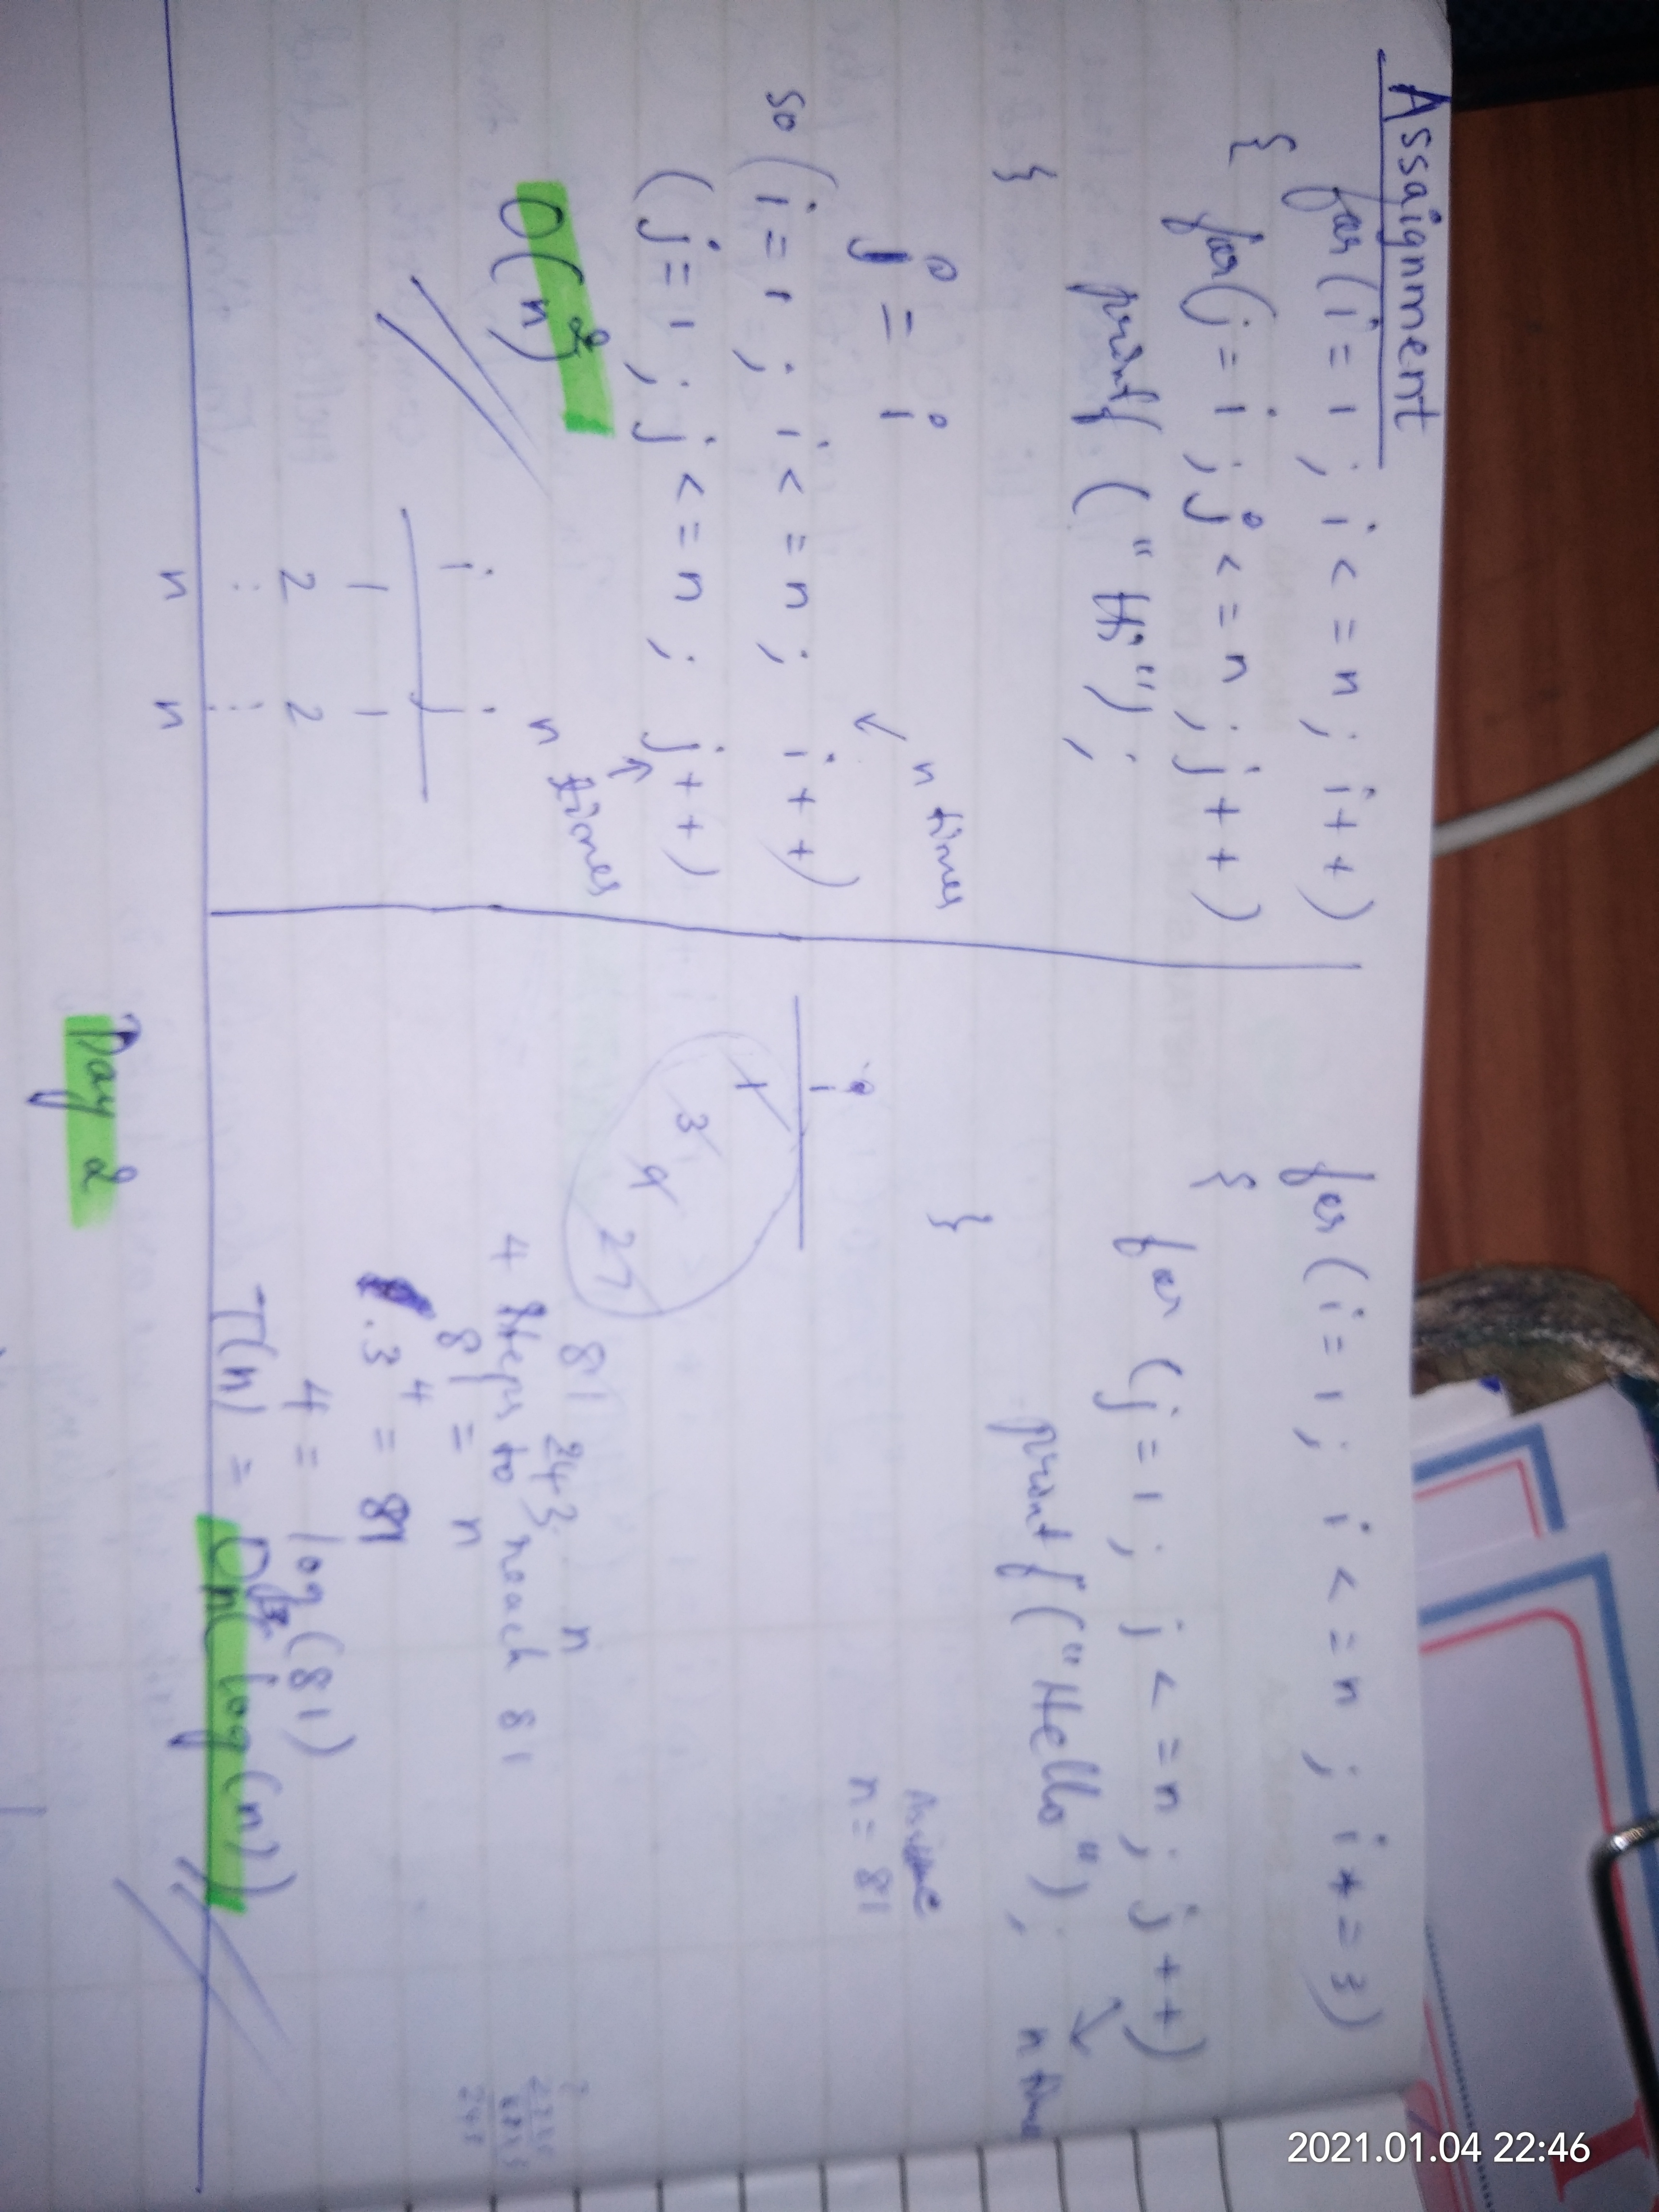 Assaignment
for(i = 1 ; i < = n ; i++)
{
for(j = i ; j < = n ; j++)
printf ("Hi");
}
j = i
n times
so (i = 1 ; i < = n ; i++)
(j = 1 ; j < = n ; j++)
n times
O(n²)
i j
1 1
2 2
⋮ ⋮
n n
for(i = 1 ; i < = n ; i * = 3)
{
for (j = 1 ; j < = n ; j++)
printf("Hello"); n time
}
n = 81
i
1
3
9
27
81 243 n
4 steps to reach 81
81 = n
3⁴ = 81
4 = log(81)
T(n) = O(n log(n))
Day 2
2021.01.04 22:46